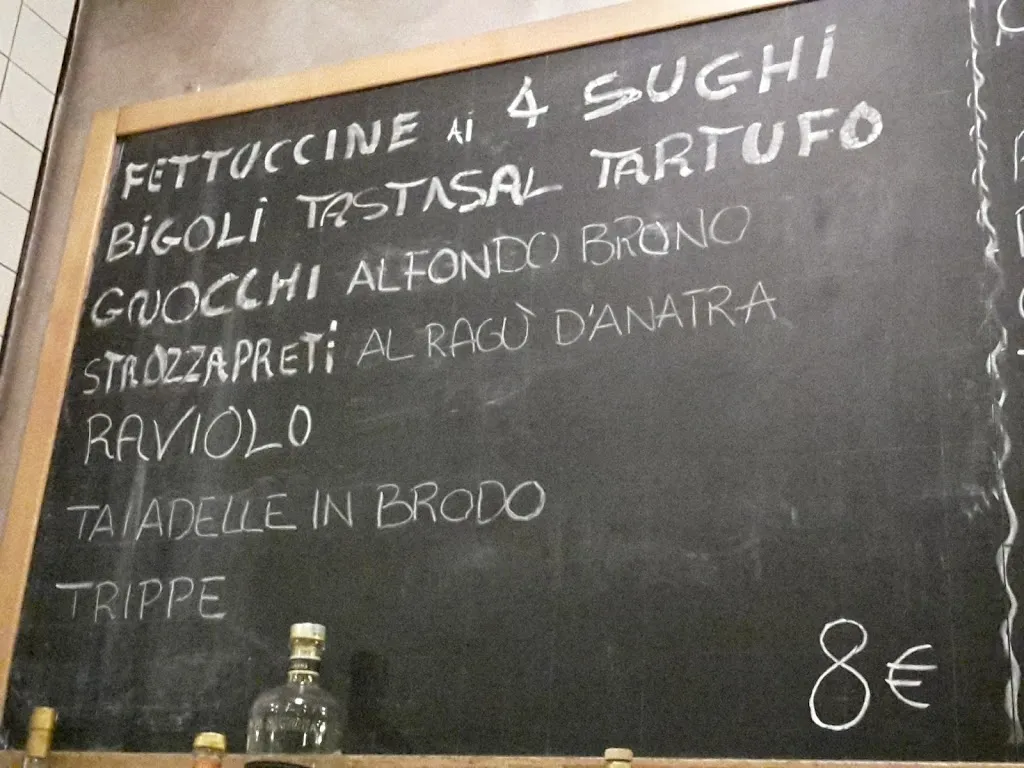 FETTUCCINE Ai 4 SUGHi
BiGOLi TASTASAL TARTUFO
GNOCCHI AL FONDO BRUNO
STROZZAPRETi AL RAGÙ D'ANATRA
RAVIOLO
TAIADELLE IN BRODO
TRIPPE
8€